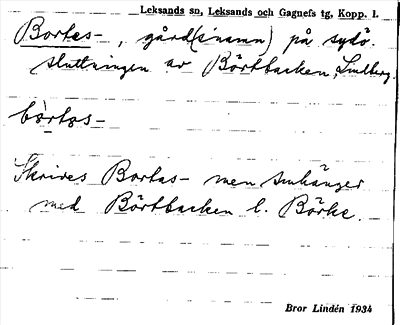 Leksands sn, Leksands och Gagnefs tg, Kopp. l.
Bortas-, gård(snamn) på sydö.
sluttningen av Börtbacken, Lindberg.
bo̱rtas-
Skrives Bortas- men smhänger
med Börtbacken l. Börke.
Bror Lindén 1934